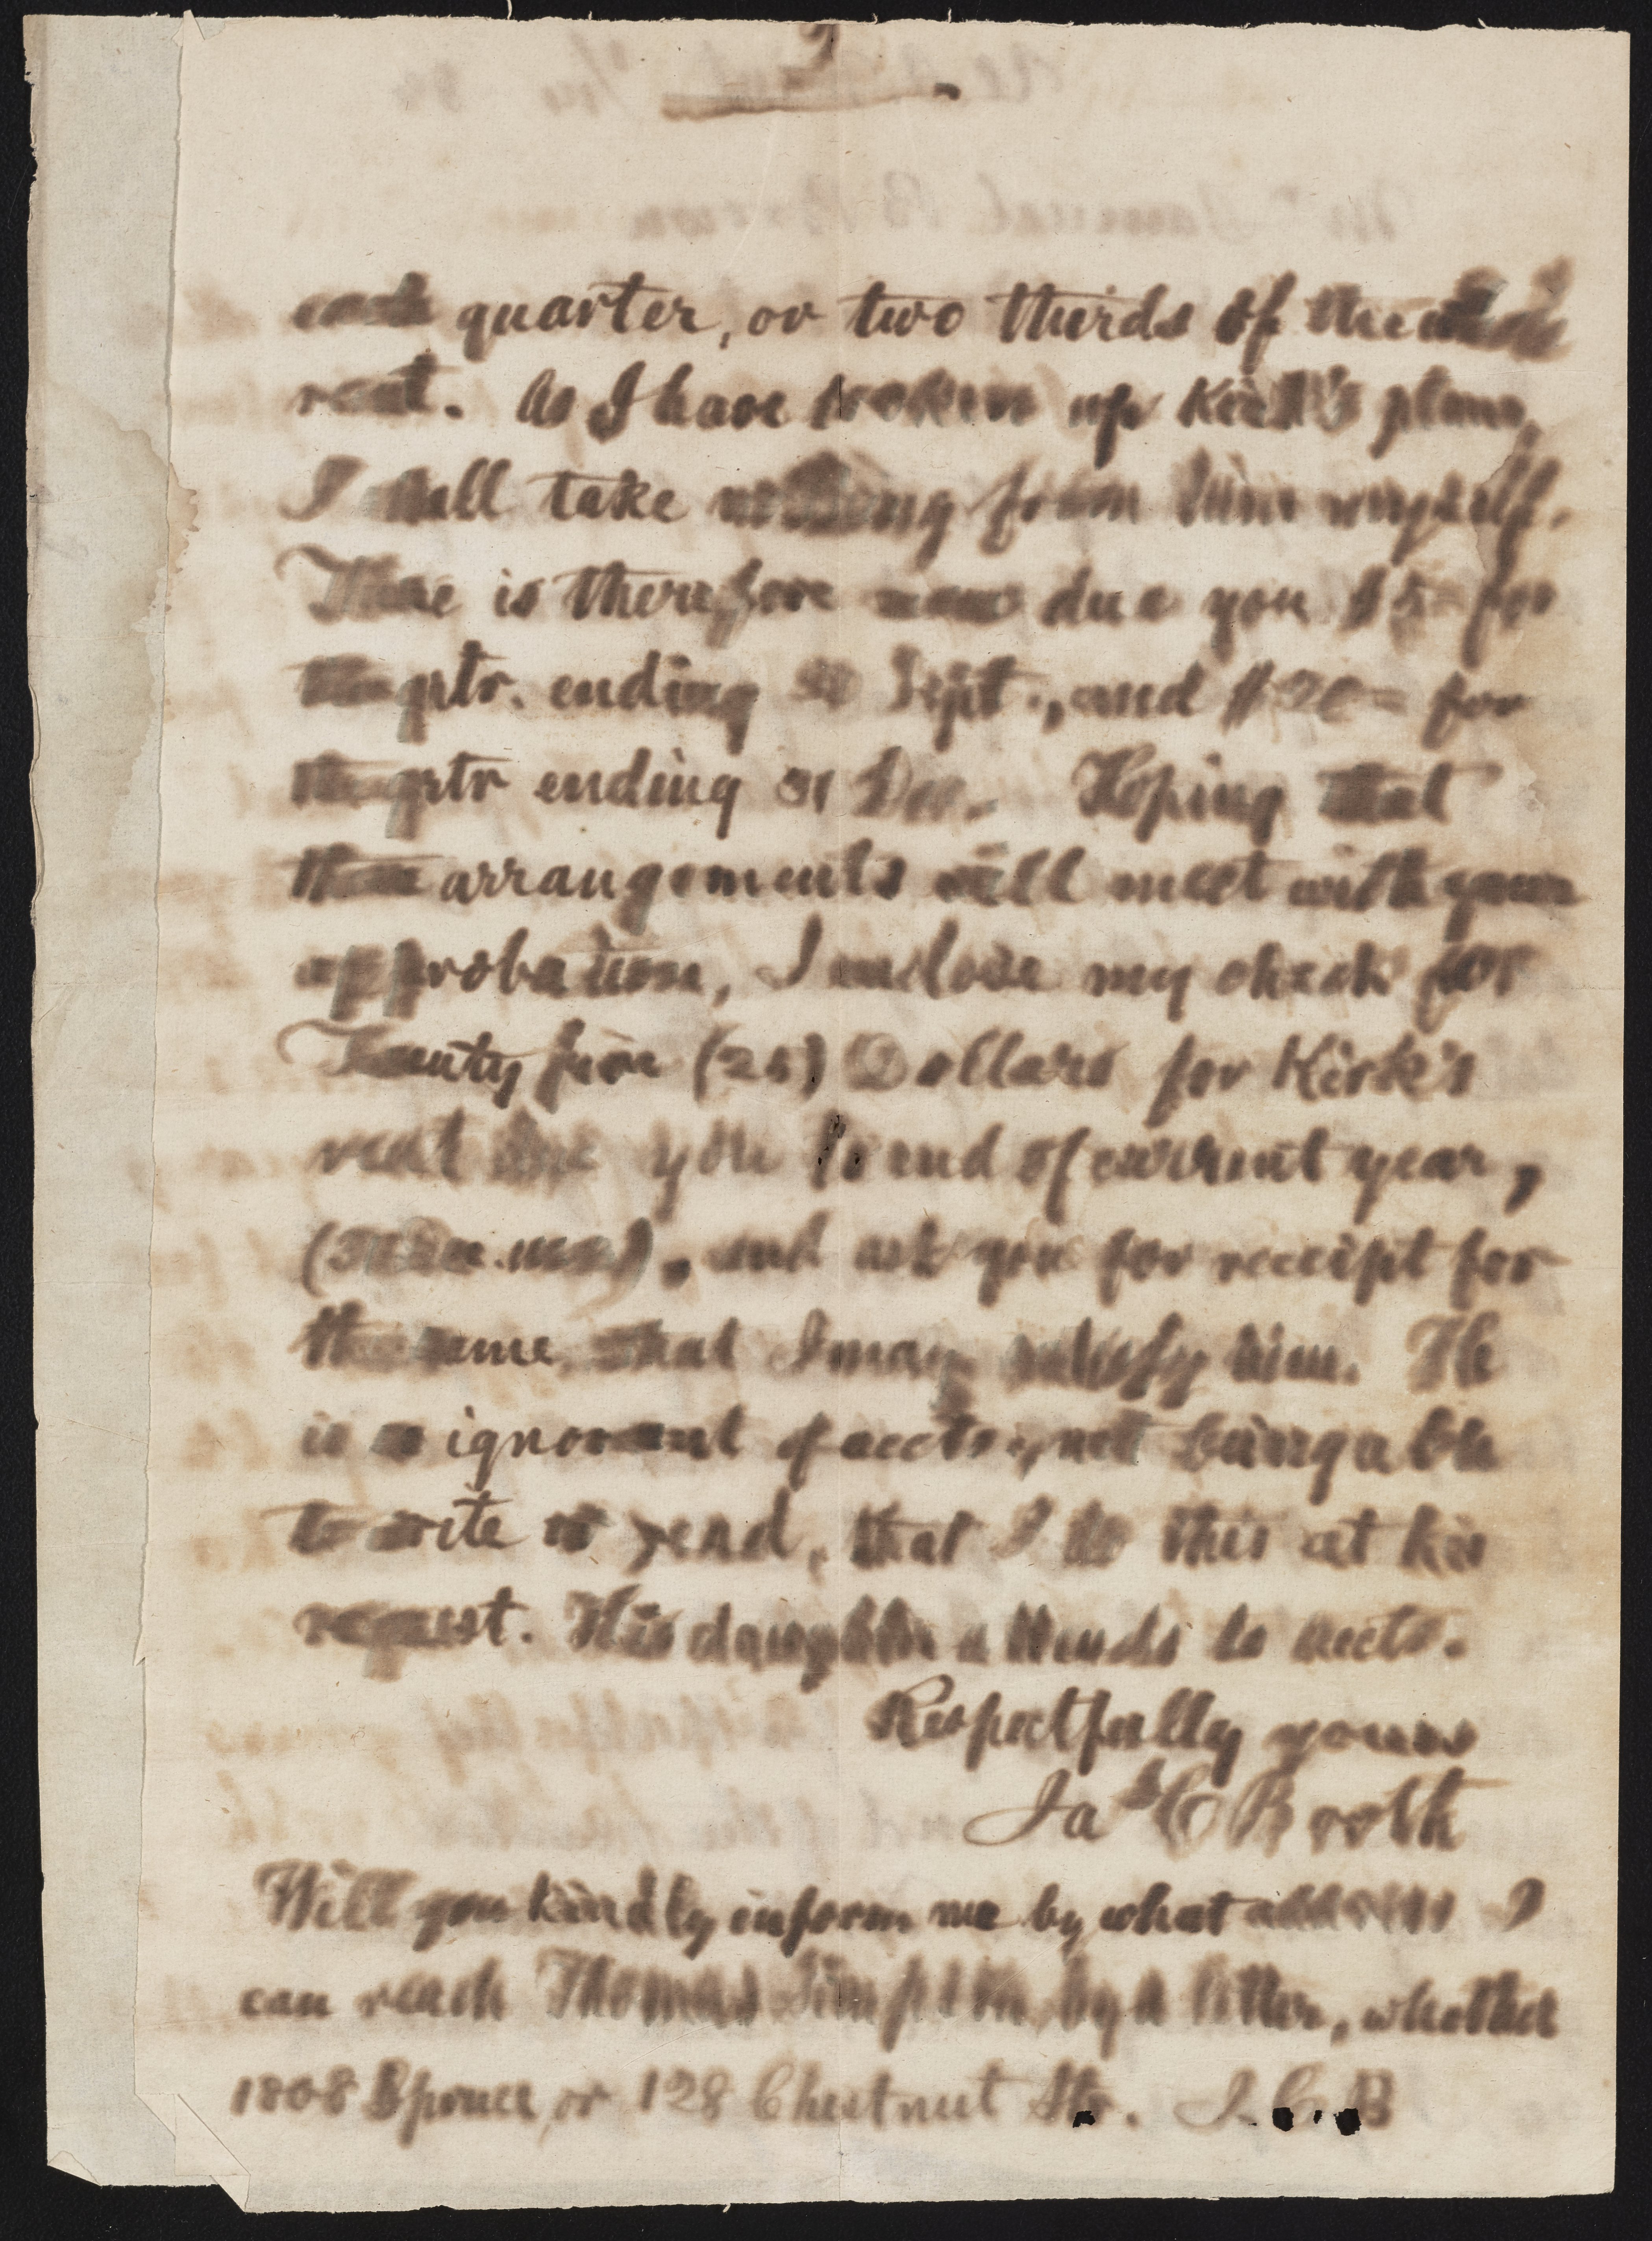 2
each quarter, or two thirds of the whole
rent. As I have broken up Kirk's plans,
I shall take nothing from him myself.
There is therefore now due you $5 = for
the qrtr. ending 30 Sept., and $20 = for
the qrtr ending 31 Dec. Hoping that
these arrangements will meet with your
approbation, I enclose my check for
Twenty five (25) Dollars for Kirk's
rent due you to end of current year,
and ask you for receipt for
the same, that I may satisfy him. He
is so ignorant of accts., not being able
to write or read, that I do this at his
request. His daughter attends to accts.
Respectfully yours
Jas C Booth
Will you kindly inform me by what address I
can reach Thomas Simpson by a letter, whether
1808 Spruce, or 128 Chestnut Str. J. C. B